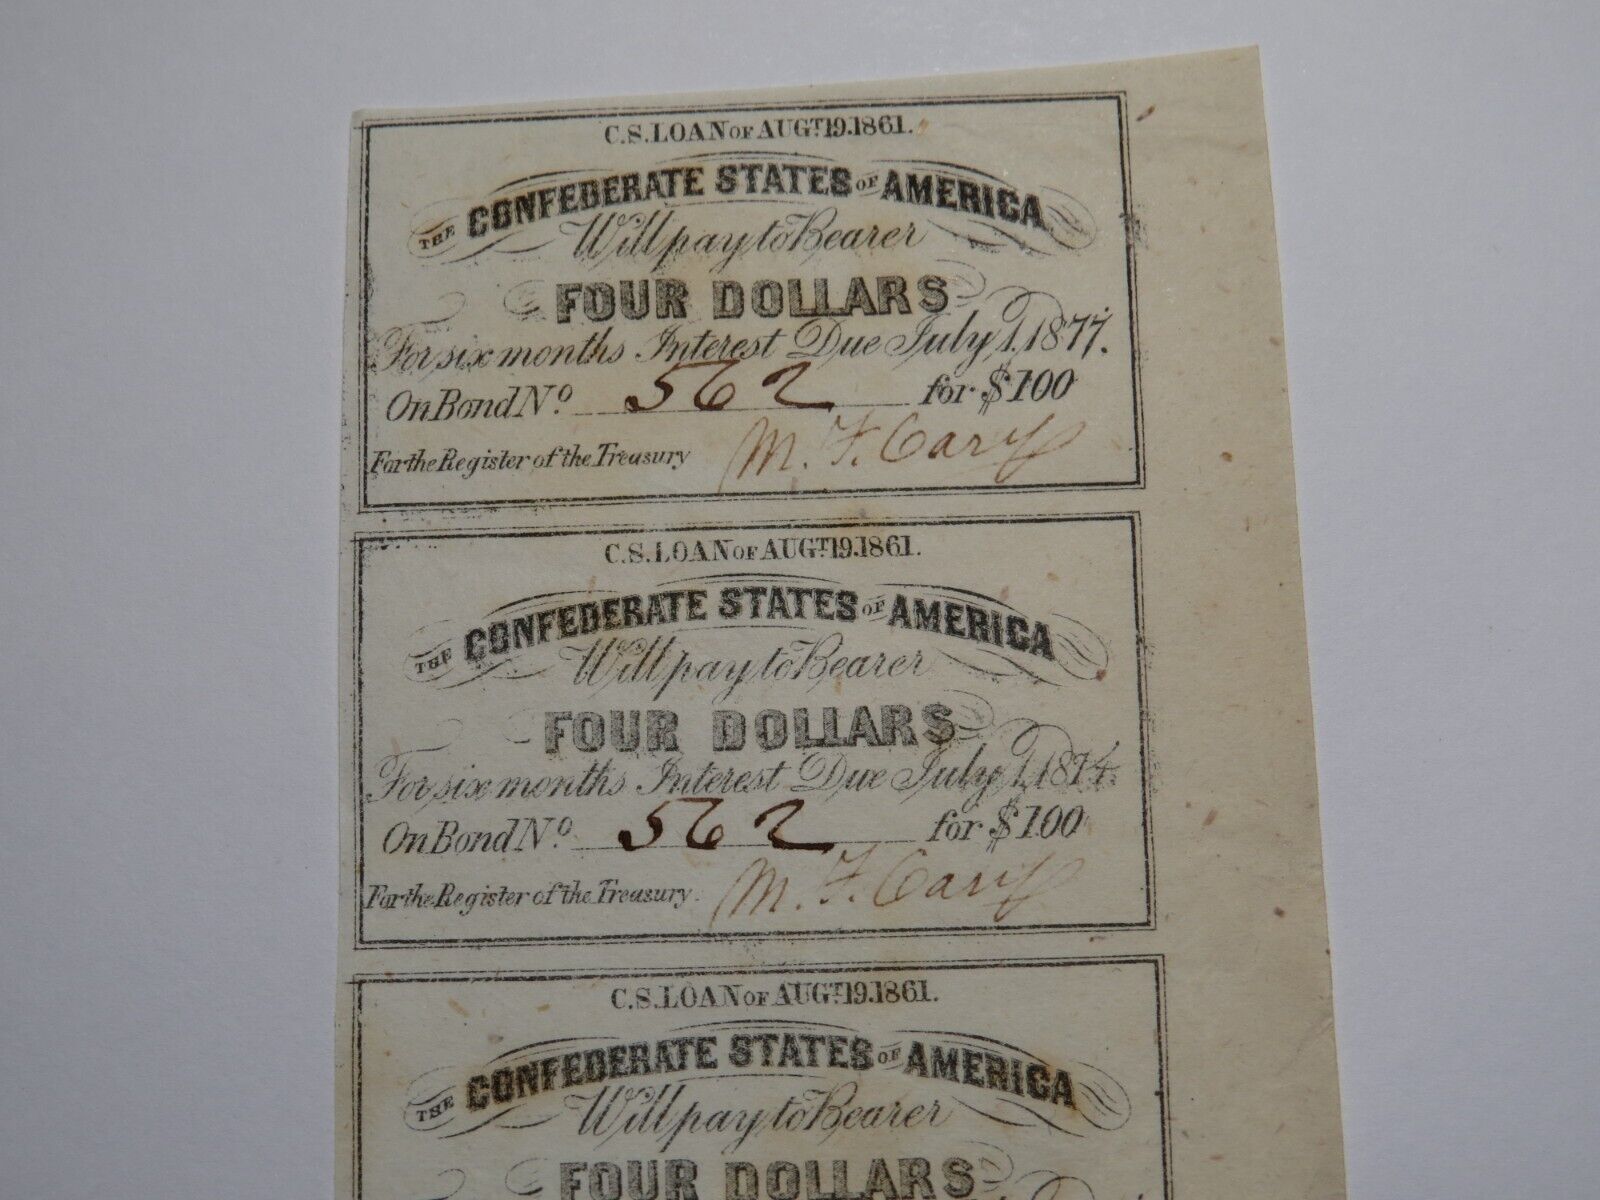 C.S. LOAN OF AUGT. 19. 1861.
THE CONFEDERATE STATES OF AMERICA
Will pay to Bearer
FOUR DOLLARS
For six months Interest Due July 1, 1877.
On Bond No. 562 for $100
For the Register of the Treasury M. F. Cary
C.S. LOAN OF AUGT. 19. 1861.
THE CONFEDERATE STATES OF AMERICA
Will pay to Bearer
FOUR DOLLARS
For six months Interest Due July 1, 1874.
On Bond No. 562 for $100
For the Register of the Treasury. M. F. Cary
C.S. LOAN OF AUGT. 19. 1861.
THE CONFEDERATE STATES OF AMERICA
Will pay to Bearer
FOUR DOLLARS